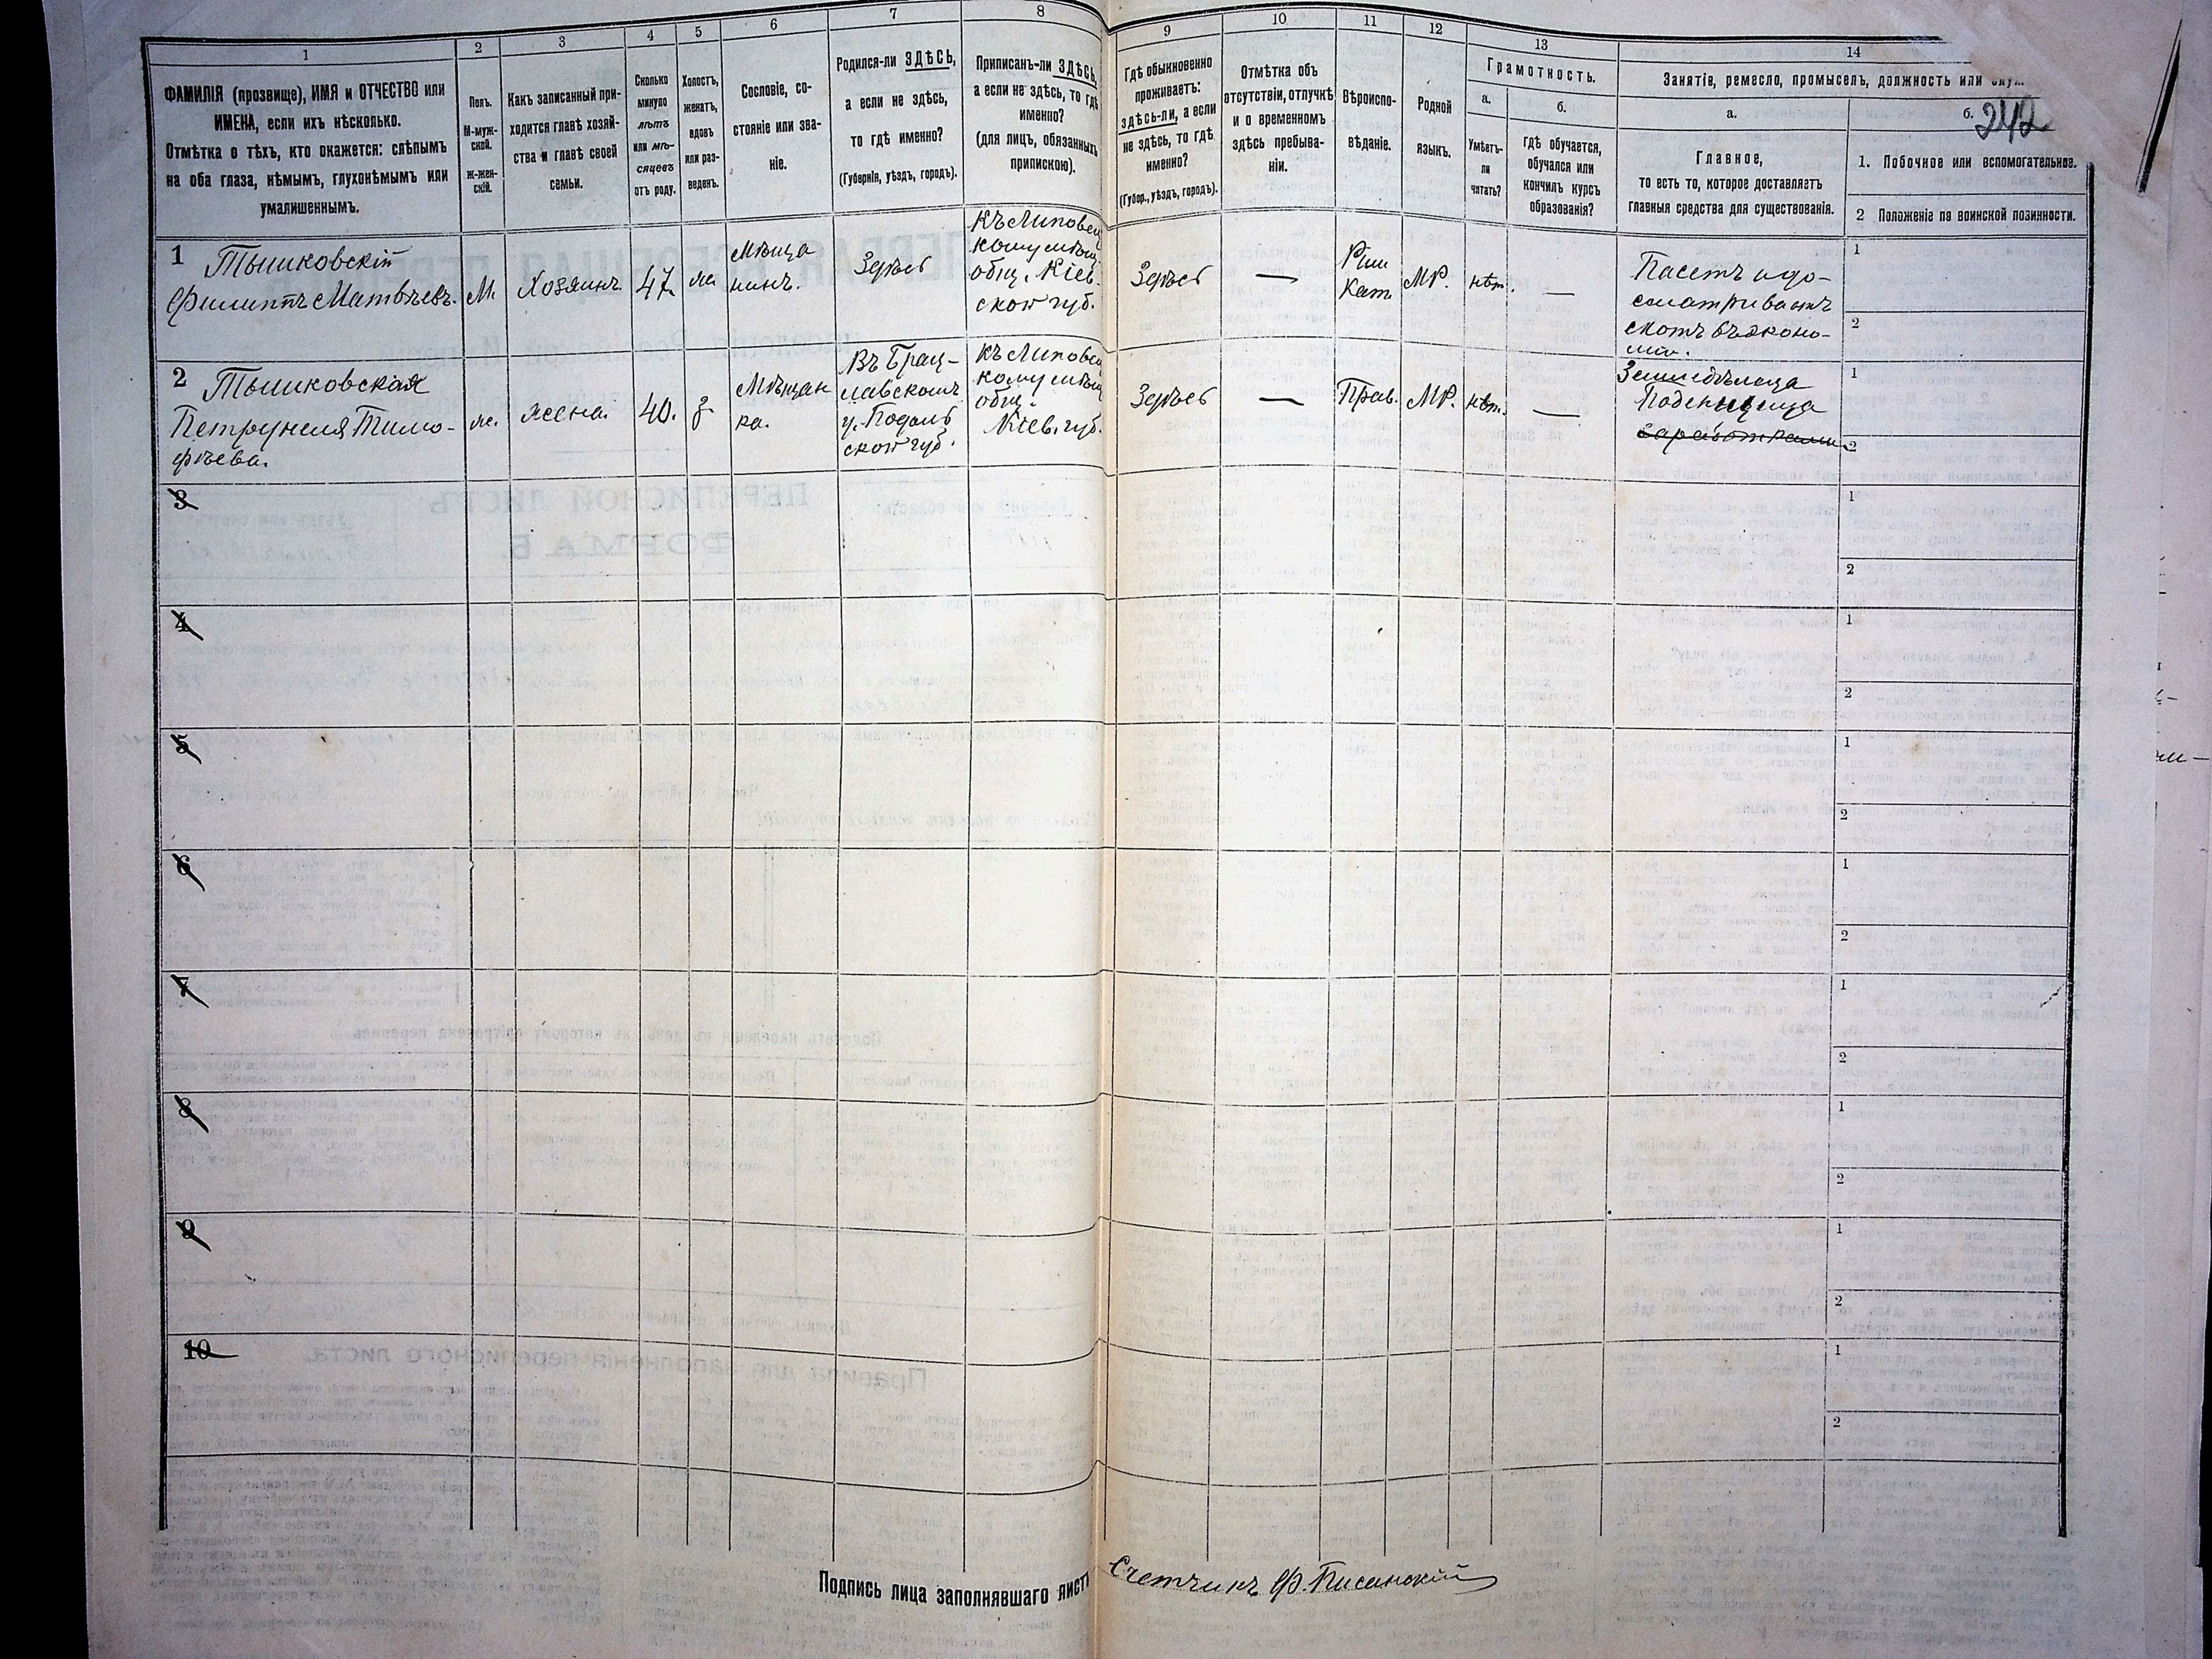 1
2
3
4
5
6
7
8
9
10
11
12
13
14
ФАМИЛІЯ (прозвище), ИМЯ и ОТЧЕСТВО или
ИМЕНА, если ихъ нѣсколько.
Отмѣтка о тѣхъ, кто окажется: слѣпымъ
на оба глаза, нѣмымъ, глухонѣмымъ или
умалишеннымъ.
Полъ.
М-муж-
ской.
Ж-жен-
скій.
Какъ записанный при-
ходится главѣ хозяй-
ства и главѣ своей
семьи.
Сколько
минуло
лѣтъ
или мѣ-
сяцевъ
отъ роду.
Холостъ,
женатъ,
вдовъ
или раз-
веденъ.
Сословіе, со-
стояніе или зва-
ніе.
Родился-ли ЗДѢСЬ,
а если не здѣсь,
то гдѣ именно?
(Губернія, уѣздъ, городъ).
Приписанъ-ли ЗДѢСЬ,
а если не здѣсь, то гдѣ
именно?
(для лицъ, обязанныхъ
припискою).
Гдѣ обыкновенно
проживаетъ:
здѣсь-ли, а если
не здѣсь, то гдѣ
именно?
(Губер., уѣздъ, городъ).
Отмѣтка объ
отсутствіи, отлучкѣ
и о временномъ
здѣсь пребыва-
ніи.
Вѣроиспо-
вѣданіе.
Родной
языкъ.
Грамотность.
а.
б.
Умѣетъ-
ли
читать?
гдѣ обучается,
обучался или
кончилъ курсъ
образованія?
Занятіе, ремесло, промыселъ, должность или
а.
б.
242
Главное,
то есть то, которое доставляетъ
главныя средства для существованія.
1. Побочное или вспомогательное.
2 Положеніе по воинской повинности.
1 Тышковскій
Филиппъ Матвѣевъ.
М.
Хозяинъ
47
ж
Мѣща
нинъ.
Здѣсь
Къ Липовец
кому мѣщ.
общ. Кіев-
ской губ.
Здѣсь
—
Рим
Кат
МР.
нѣт.
—
Пасетъ и до-
сматриваетъ
скотъ въ эконо-
міи.
1
2
2 Тышковская
Петрунеля Тимо-
фѣева.
ж.
жена.
40.
з
Мѣщан
ка.
Въ Брац-
лавскомъ
у. Подоль
ской губ.
Къ Липовец
кому мѣщ
общ.
Кіев. губ.
Здѣсь
—
Прав.
МР.
нѣт.
—
Поденьщица
1
2
3
1
2
4
1
2
5
1
2
6
1
2
7
1
2
8
1
2
9
1
2
10
1
2
Подпись лица заполнявшаго листъ
Счетчикъ Ф. Писанскій